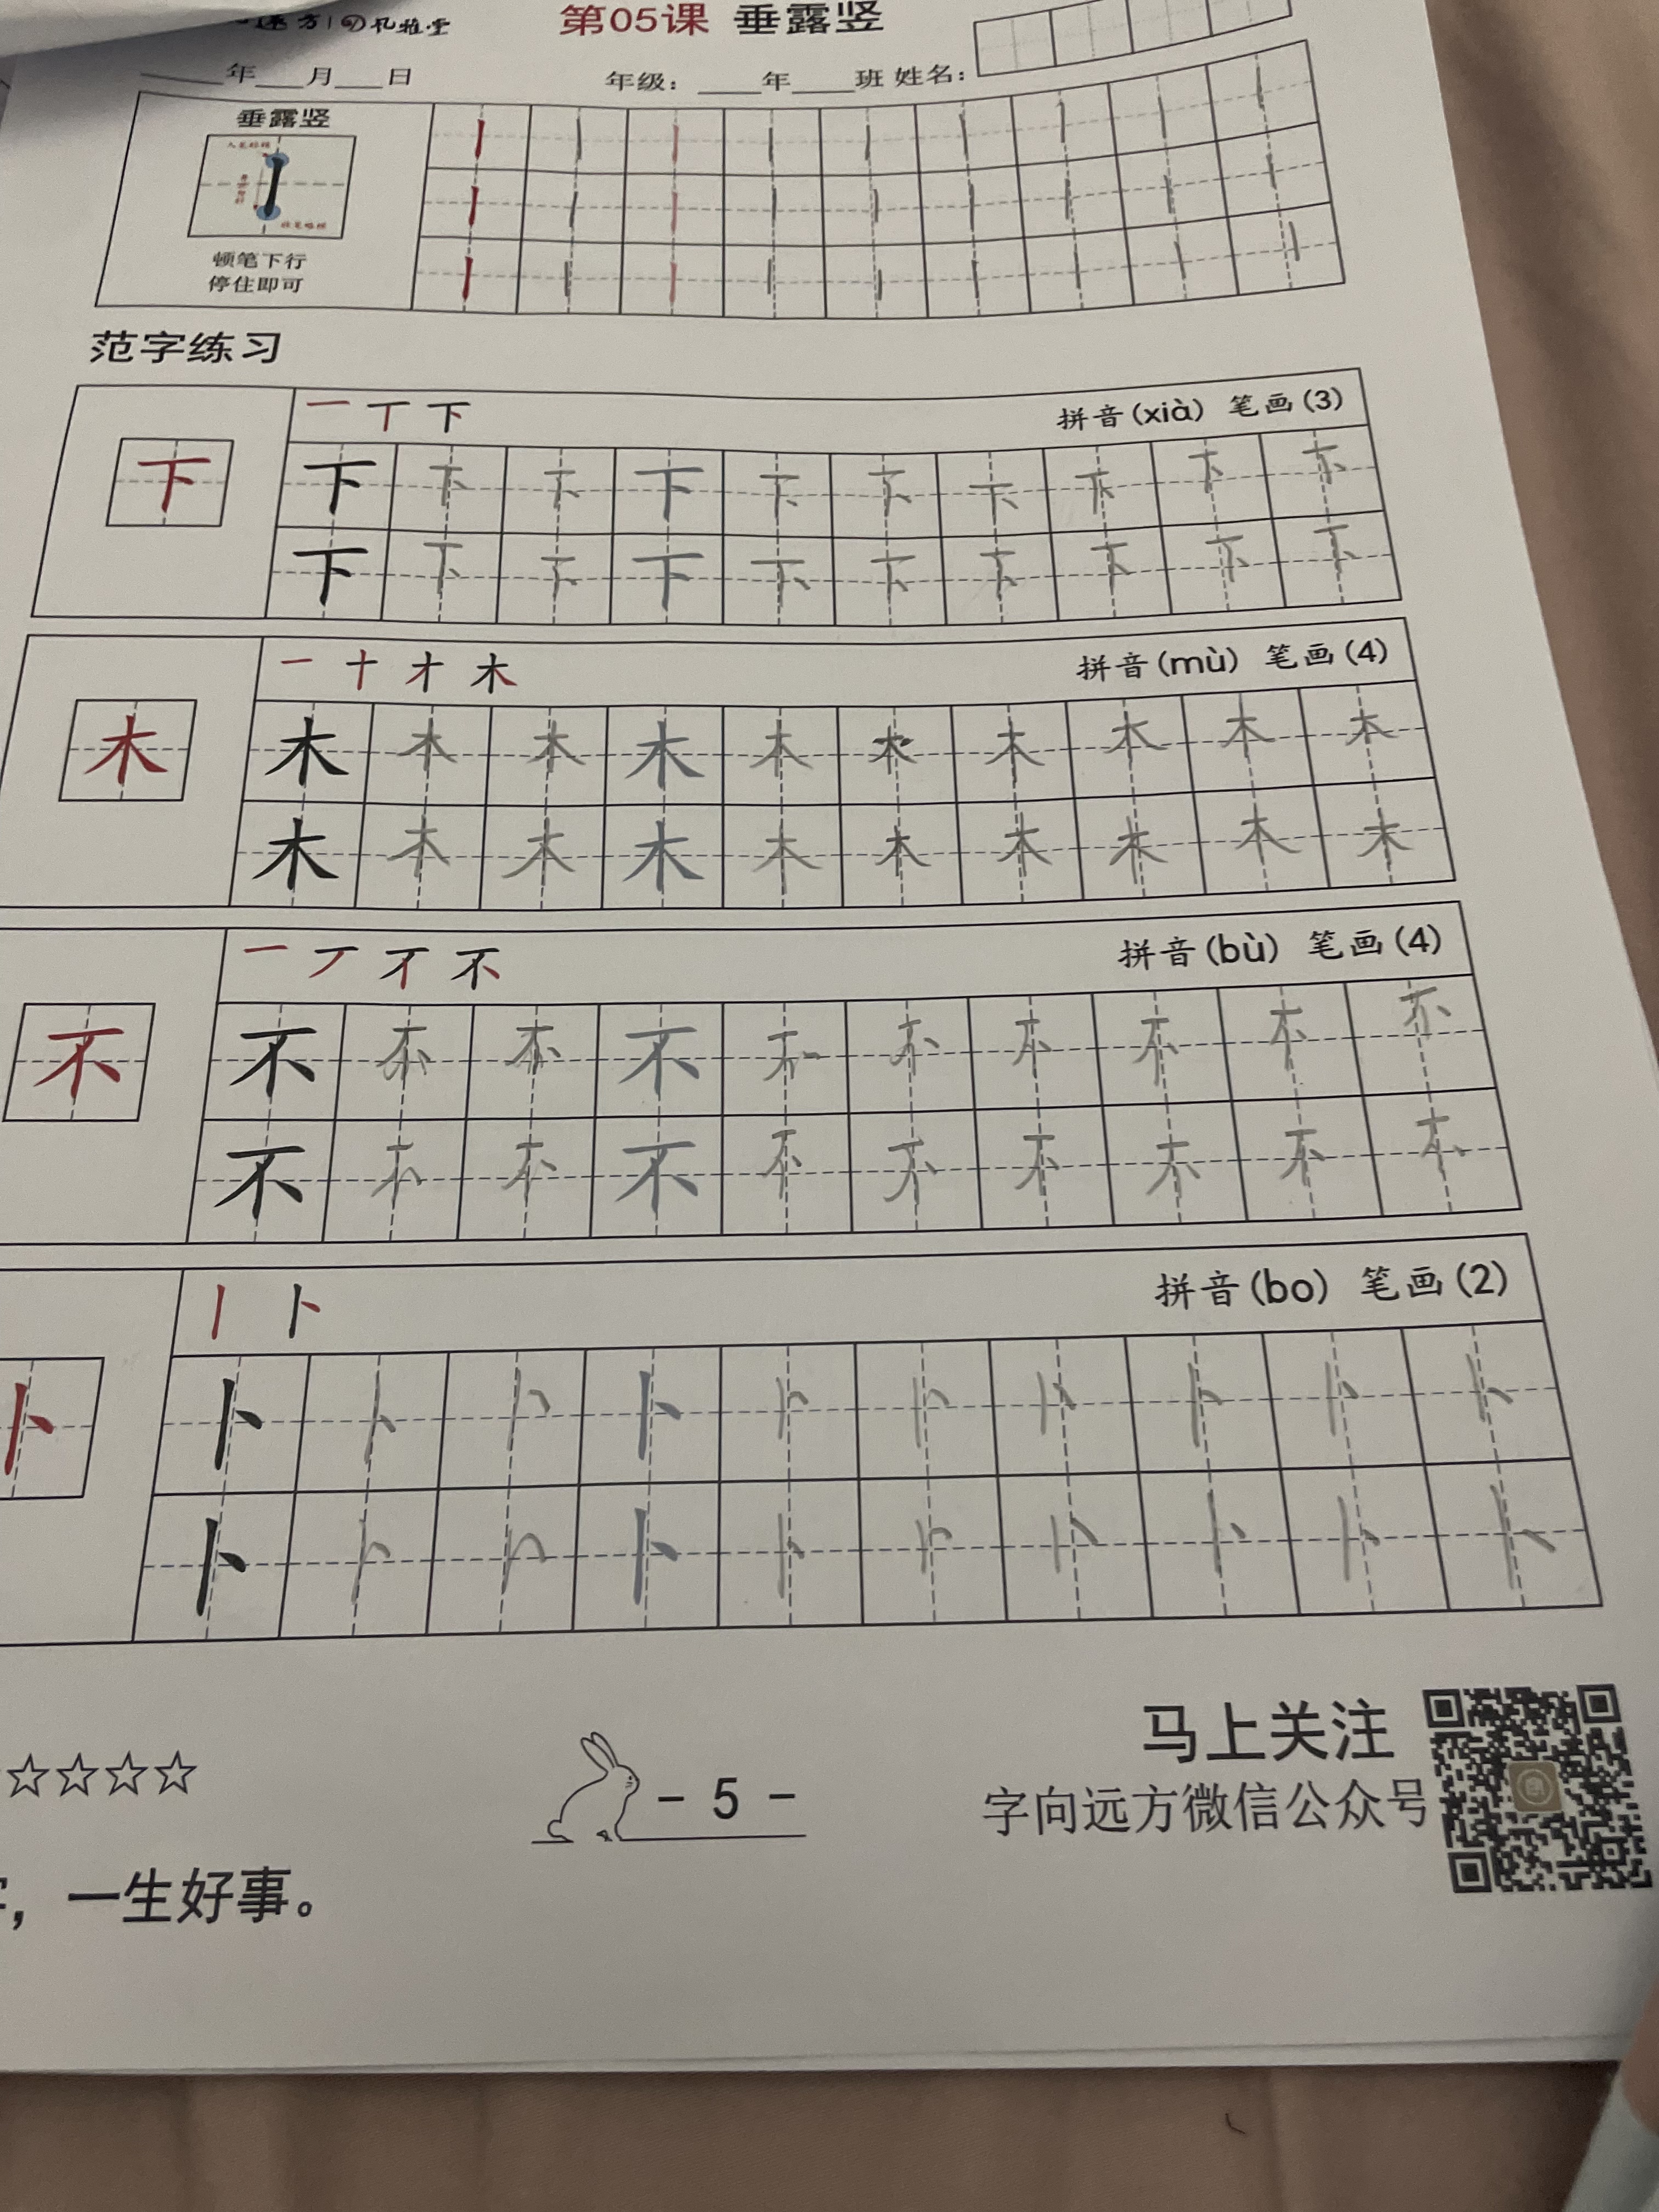 远方 | 孔雅堂
第05课 垂露竖
____年___月___日 年级：____年____班 姓名：
垂露竖
顿笔下行
停住即可
范字练习
一 丅 下 拼音(xià) 笔画(3)
下 下 下 下 下 下 下 下 下 下 下
下 下 下 下 下 下 下 下 下 下
一 十 才 木 拼音(mù) 笔画(4)
木 木 木 木 木 木 木 木 木 木 木
木 木 木 木 木 木 木 木 木 木
一 丆 不 拼音(bù) 笔画(4)
不 不 不 不 不 不 不 不 不 不 不
不 不 不 不 不 不 不 不 不 不
丨 卜 拼音(bo) 笔画(2)
卜 卜 卜 卜 卜 卜 卜 卜 卜 卜 卜
卜 卜 卜 卜 卜 卜 卜 卜 卜 卜
☆☆☆☆
- 5 -
马上关注
字向远方微信公众号
，一生好事。